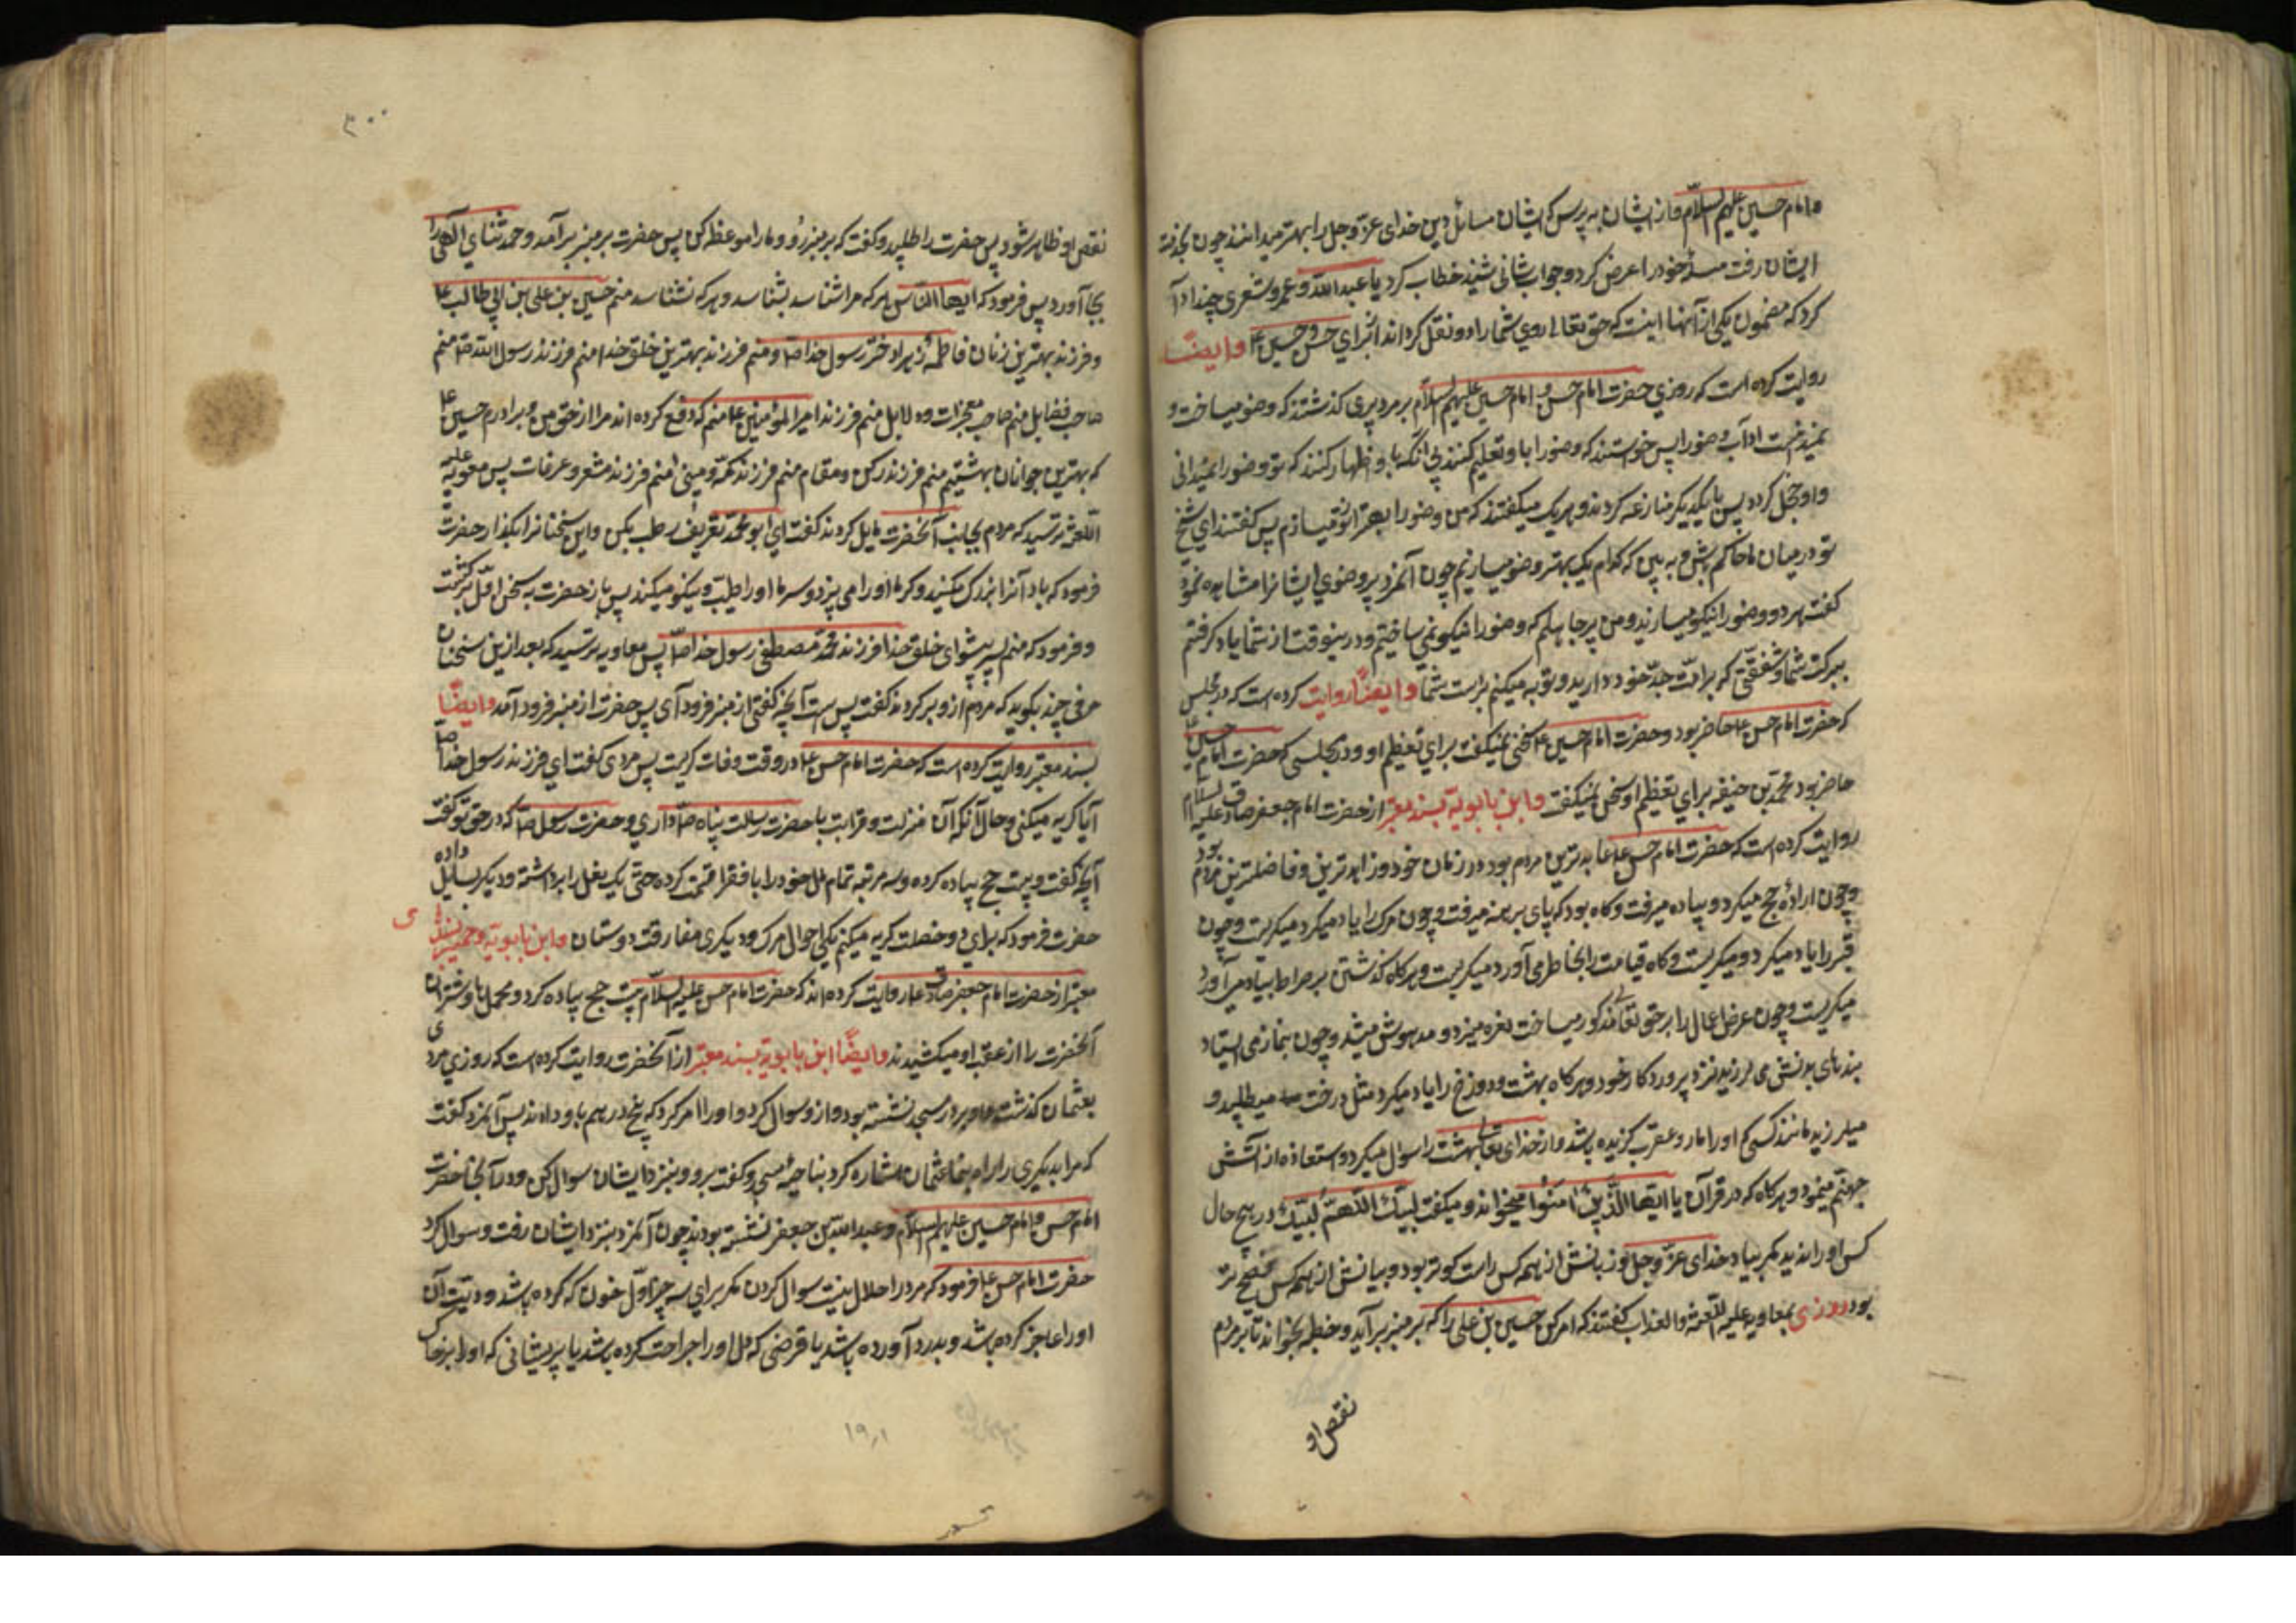 و امام حسین علیهم السلام و از ایشان به پرس که ایشان مسائل دین خدای عز و جل را بهتر میدانند چون بخدمت
ایشان رفت مسئله خود را عرض کرد و جواب شافی شنید خطاب کرد با عبد الله و عمرو شعری چند ادا
کرد که مضمون یکی از آنها اینست که حق تعالی روی شما را دو نعل گردانداز برای حسن و حسین ع وایضًا
روایت کرده است که روزی حضرت امام حسن و امام حسین علیهم السلام بر مرد پیری گذشتند که وضو میساخت و
نمیدانست آداب وضو را پس خواستند که وضو را با و تعلیم کنند بی آنکه با و اظهار کنند که تو وضو را نمیدانی
و او خجل گردد پس با یکدیگر منازعه کردند و هر یک میگفتند که من وضو را بهتر از تو میسازم پس گفتند ای شیخ
تو در میان ما حاکم باش و به بین که کدام یک بهتر وضو میسازیم چون آنمرد پیر وضوی ایشانرا مشاهده نمود
گفت هر دو وضو را نیکو میسازید و من پیر جاهلم که وضو را نیکو نمی ساختم و درینوقت از شما یاد گرفتم
ببرکت شما و شفقتی که بر امّت جدّ خود دارید و توبه میکنم بر دست شما وایضًا روایت کرده است که در مجلس
که حضرت امام حسن ع حاضر بود و حضرت امام حسین ع سخن نمیگفت برای تعظیم او و در مجلسی که حضرت امام حسین ع
حاضر بود محمد بن حنفیه برای تعظیم او سخن نمیگفت و ابن بابویه بسند معتبر از حضرت امام جعفر صادق علیه السلام
روایت کرده است که حضرت امام حسن ع عابدترین مردم بود در زمان خود و زاهدترین و فاضلترین مردم بود
و چون اراده حج میکرد و پیاده میرفت و گاه بود که پای برهنه میرفت و چون مرگ را یاد میکرد میگریست و چون
قبر را یاد میکرد و میگریست و گاه قیامت را بخاطر می آورد میگریست و هرگاه گذشتن بر صراط بیاد می آورد
میگریست و چون عرض اعمال را بر حق تعالی مذکور میساخت نعره میزد و مدهوش میشد و چون بنماز می ایستاد
بندهای بدنش می لرزید نزد پروردگار خود و هرگاه بهشت و دوزخ را یاد میکرد مثل درخت میطلپید و
میلرزید مانند کسی که او را مار و عقرب گزیده باشد و از خدای تعالی بهشت را سوال میکرد و استعاذه از آتش
جهنّم مینمود و هرگاه که در قرآن یا ایها الذین امنوا میخواند و میگفت لبیک اللهمّ لبیک در هیچ حال
کس او را ندید مگر بیاد خدای عزّ و جل و زبانش از همه کس راست گوتر بود و بیانش از همه کس فصیح تر
بود روزی بمعاویه علیه اللعنه والعذاب گفتند که امر کن حسین بن علی را که بر منبر برآید و خطبه بخواند تا بر مردم
نقص او
۳۰۰
نقص او ظاهر شود پس حضرت را طلبید و گفت که بر منبر رو و ما را موعظه کن پس حضرت بر منبر برآمد و حمد و ثنای الهی را
بجا آورد پس فرمود که ایها الناس هر که مرا شناسد بشناسد و هر که نشناسد منم حسین بن علی بن ابی طالب ع
و فرزند بهترین زنان فاطمهٔ زهرا دختر رسول خدا ص و منم فرزند بهترین خلق خدا منم فرزند رسول الله ص منم
صاحب فضایل منم صاحب معجزات و دلایل منم فرزند امیر المؤمنین ع منم که دفع کرده اند مرا از حق من و برادرم حسین ع
که بهترین جوانان بهشتیم منم فرزند رکن و مقام منم فرزند مکّه و منی منم فرزند مشعر و عرفات پس معویه علیه
اللعنه ترسید که مردم بجانب آنحضرت مایل گردند گفت ای ابو محمّد تعریف رطب بکن و این سخنانرا بگذار حضرت
فرمود که باد آنرا بزرگ میکنید و گرما او را می پزد و سرما او را طیّب و نیکو میکند پس باز حضرت بسخن اوّل برگشت
و فرمود که منم پسر پیشوای خلق خدا فرزند محمّد مصطفی رسول خدا ص پس معاویه ترسید که بعد ازین سخنان
حرفی چند بگوید که مردم ازو برگردند گفت پس است آنچه گفتی از منبر فرود آی پس حضرت از منبر فرود آمد وایضًا
بسند معتبر روایت کرده است که حضرت امام حسن ع در وقت وفات گریست پس مردی گفت ای فرزند رسول خدا ص
آیا گریه میکنی و حال آنکه آن منزلت و قرابت با حضرت رسالت پناه ص داری و حضرت رسول ص که در حق تو گفت
آنچه گفت و بیست حج پیاده کرده و سه مرتبه تمام مال خود را با فقرا قسمت کرده حتی یک نعل را برداشته و دیگر بسایل داده
حضرت فرمود که برای دو خصلت گریه میکنم یکی احوال مرگ و دیگری مفارقت دوستان و ابن بابویه و حمیری بسند
معتبر از حضرت امام جعفر صادق ع روایت کرده اند که حضرت امام حسن علیه السلام بیست حج پیاده کرد و محملها و شتران
آنحضرت را از عقب او میکشیدند وایضًا ابن بابویه بسند معتبر از آنحضرت روایت کرده است که روزی مردی
بعثمان گذشت و او بر در مسجد نشسته بود و ازو سوال کرد و او را امر کرد که پنج درهم باو دادند پس آنمرد گفت
که مرا بدیگری راه بنما عثمان اشاره کرد بناحیهٔ مسجد و گفت برو و بنزد ایشان سوال کن و در آنجا حضرت
امام حسن و امام حسین علیهم السلام و عبد الله بن جعفر نشسته بودند چون آنمرد بنزد ایشان رفت و سوال کرد
حضرت امام حسن ع فرمود که مرد را حلال نیست سوال کردن مگر برای سه چیز اوّل خون که کرده باشد و دیت آن
او را عاجز کرده باشد و بدرد آورده باشد یا قرضی که دل او را جراحت کرده باشد یا پریشانی که او را بزخاک